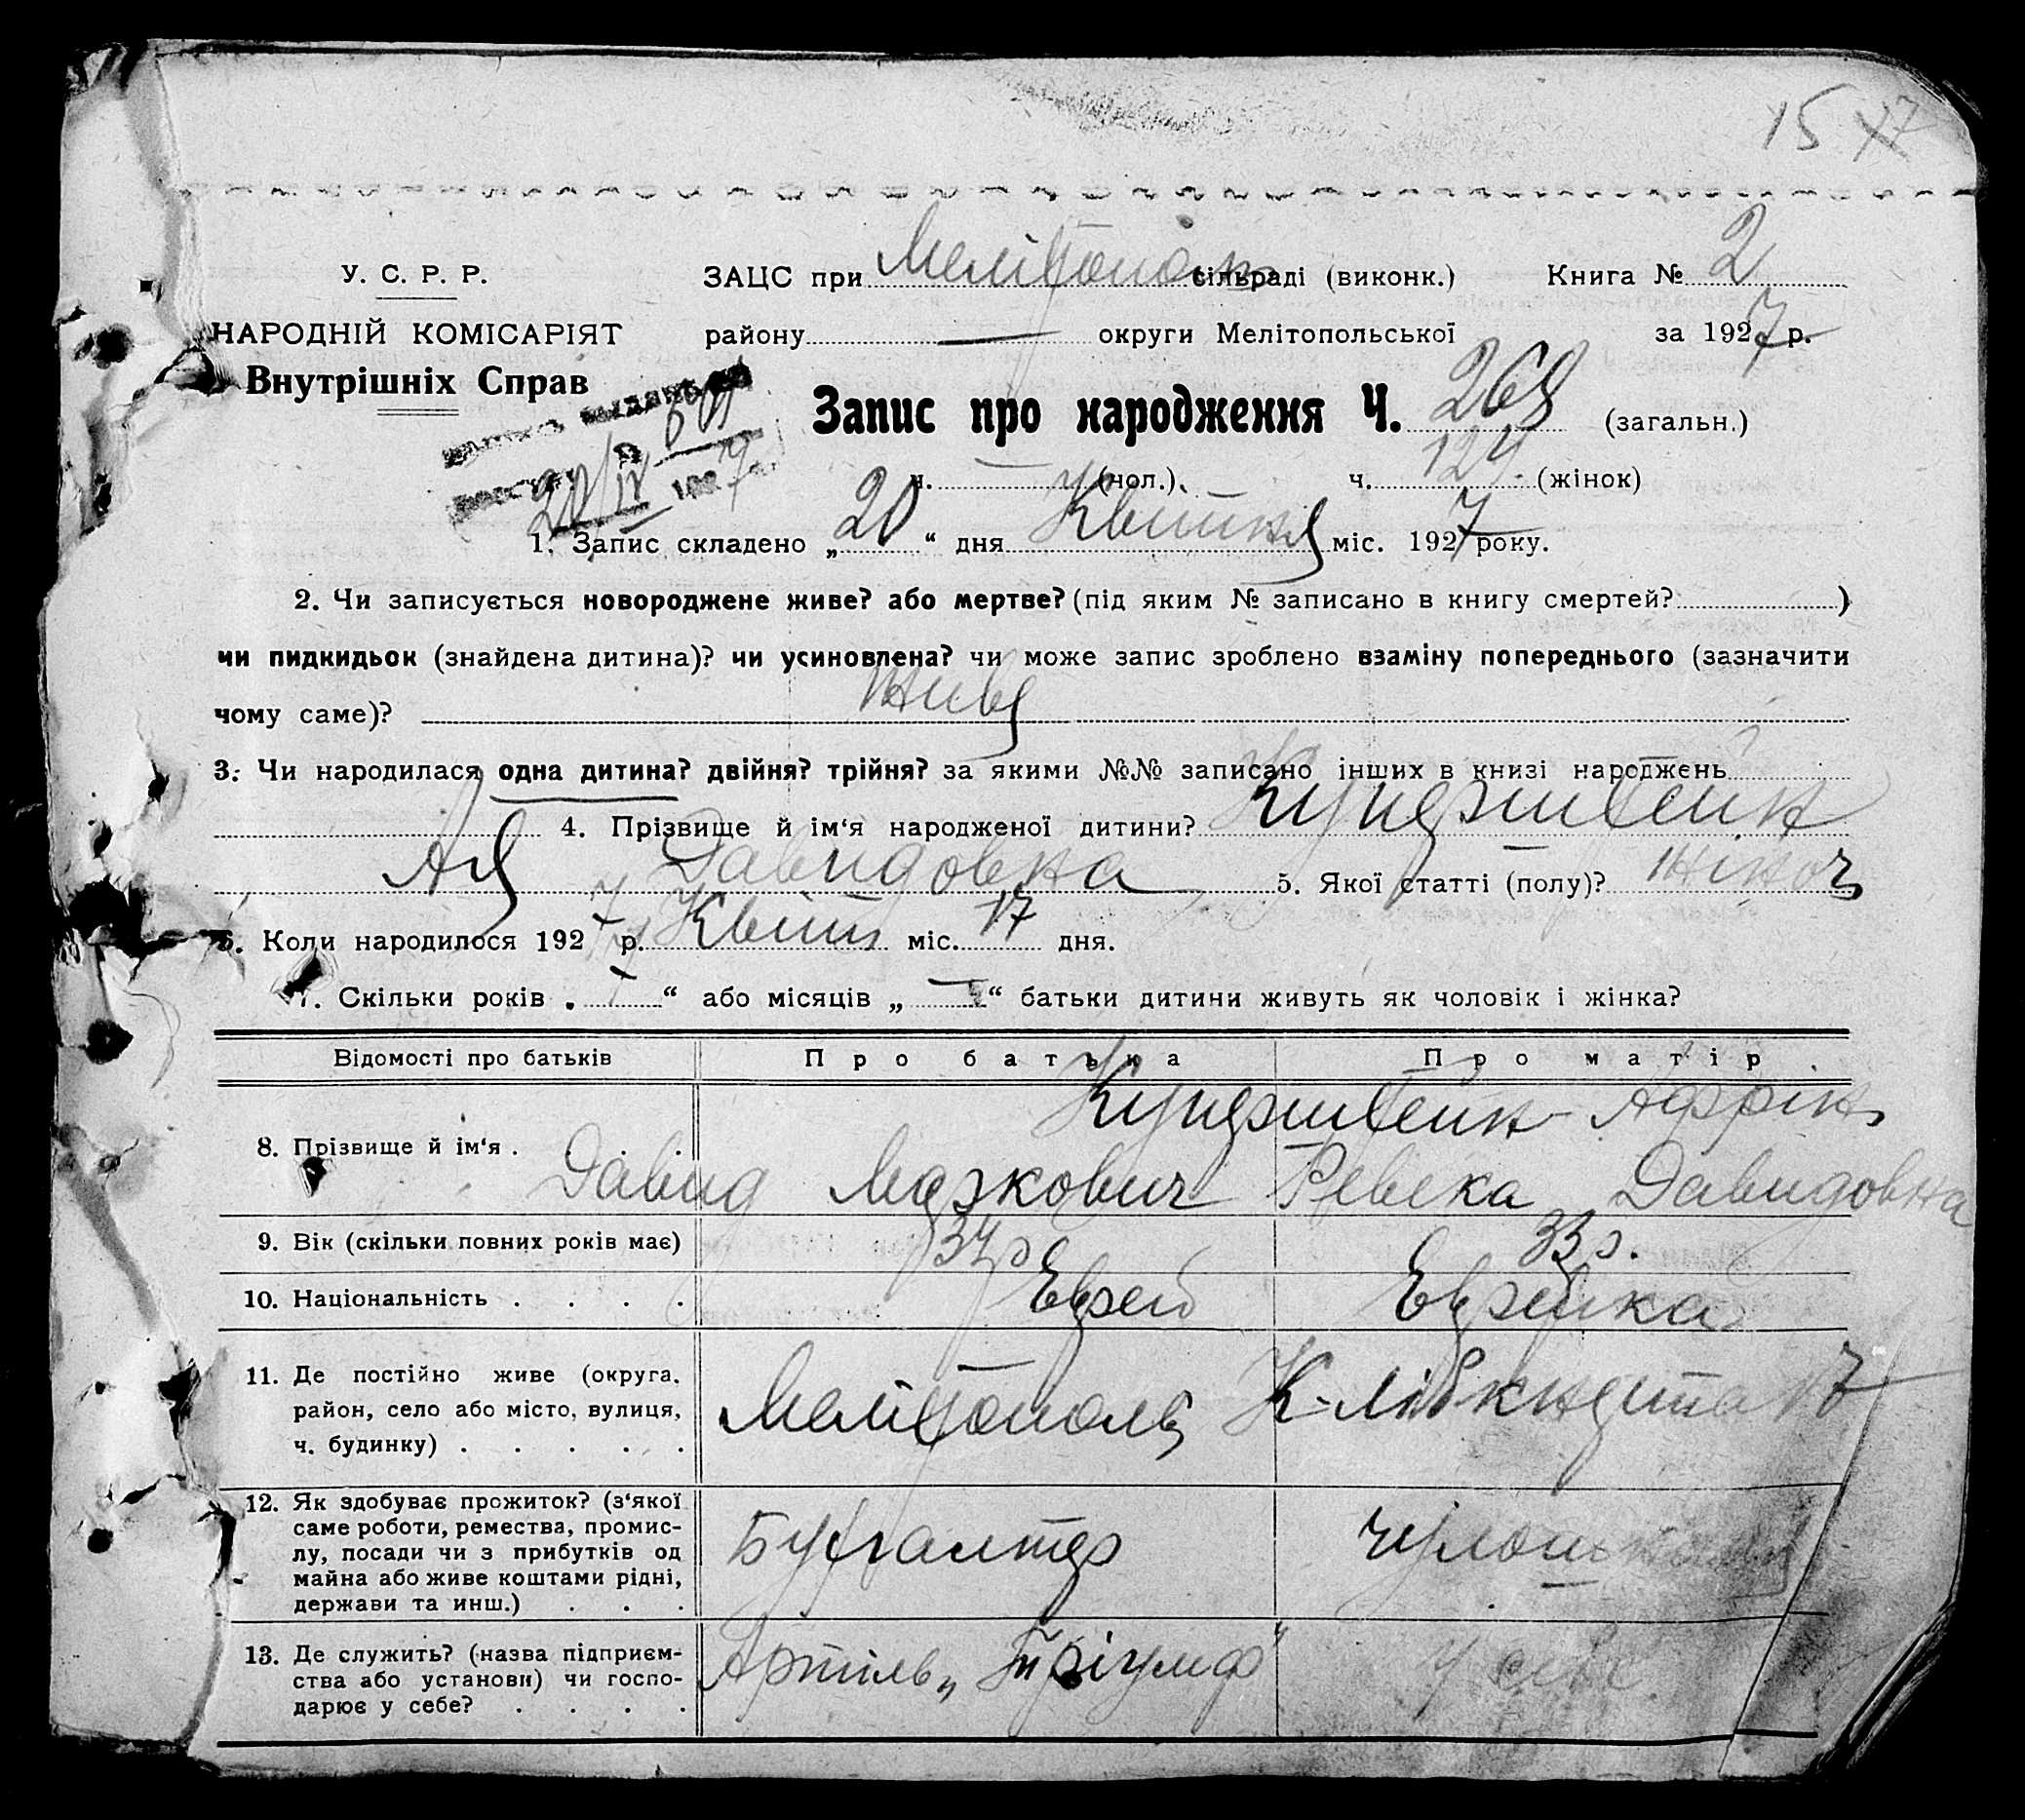 15 17
У. С. Р. Р. ЗАЦС при Мелітополь сільраді (виконк.) Книга № 2
НАРОДНІЙ КОМІСАРІЯТ району — округи Мелітопольської за 1927 р.
Внутрішніх Справ
Запис про народження Ч. 268 (загальн.)
ч. — (чол.) ч. 124 (жінок)
20/IV 1927
1. Запис складено „20“ дня Квітня міс. 1927 року.
2. Чи записується новороджене живе? або мертве? (під яким № записано в книгу смертей? )
чи пидкидьок (знайдена дитина)? чи усиновлена? чи може запис зроблено взаміну попереднього (зазначити
чому саме)? живе
3. Чи народилася одна дитина? двійня? трійня? за якими №№ записано інших в книзі народжень
4. Прізвище й ім‘я народженої дитини? Куперштейн
Ая Давидовна 5. Якої статті (полу)? жіноч
6. Коли народилося 1927 р. Квітн міс. 17 дня.
7. Скільки років „ “ або місяців „ “ батьки дитини живуть як чоловік і жінка?
Відомості про батьків Про батька Про матір
8. Прізвище й ім‘я . Куперштейн
Давид Маркович Ревека Давидовна
9. Вік (скільки повних років має) 34 р 33 р.
10. Національність . . . . Еврей Еврейка
11. Де постійно живе (округа,
район, село або місто, вулиця,
ч. будинку) . . . . . Мелітополь К-Лібкнехта 17
12. Як здобуває прожиток? (з‘якої
саме роботи, ремества, промис-
лу, посади чи з прибутків од
майна або живе коштами рідні,
держави та инш.) . . . Бухгалтер
13. Де служить? (назва підприєм-
ства або установи) чи госпо-
дарює у себе? . . . . Артіль „Тріумф“ У себе